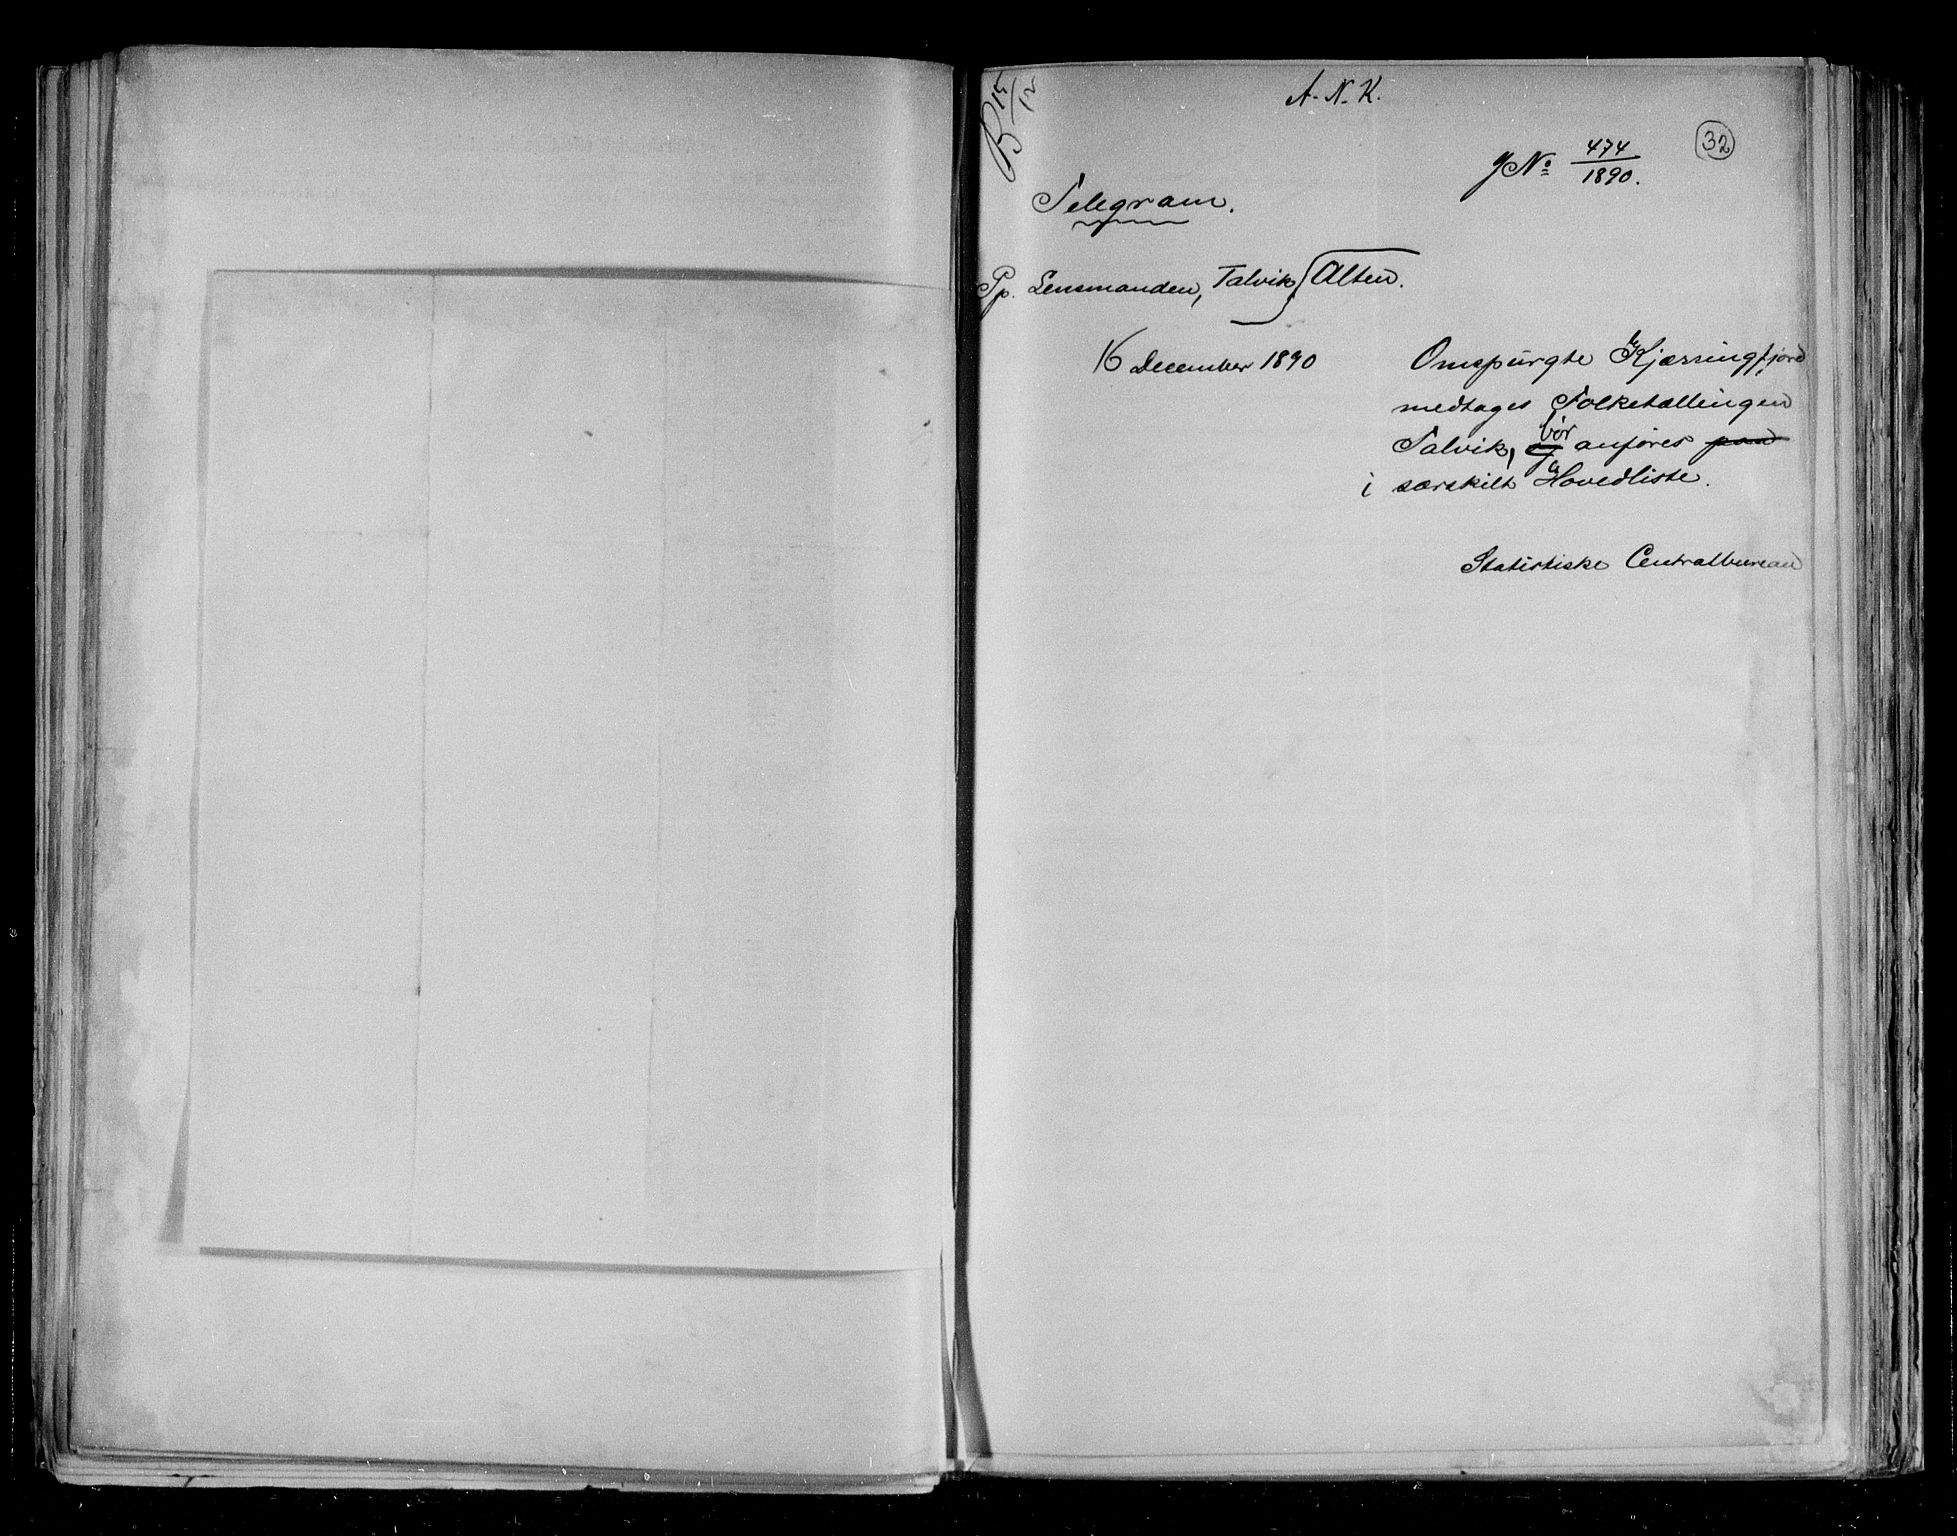 B 15/12
A. N. K.
32
J No 474/1890.
Telegram.
Lensmanden, Talvik Alten.
16 December 1890
Omspurgte Kjærringfjord
medtages Folketællingen
Talvik, bør anføres paa
i særskilt Hovedliste.
Statistiske Centralbureau